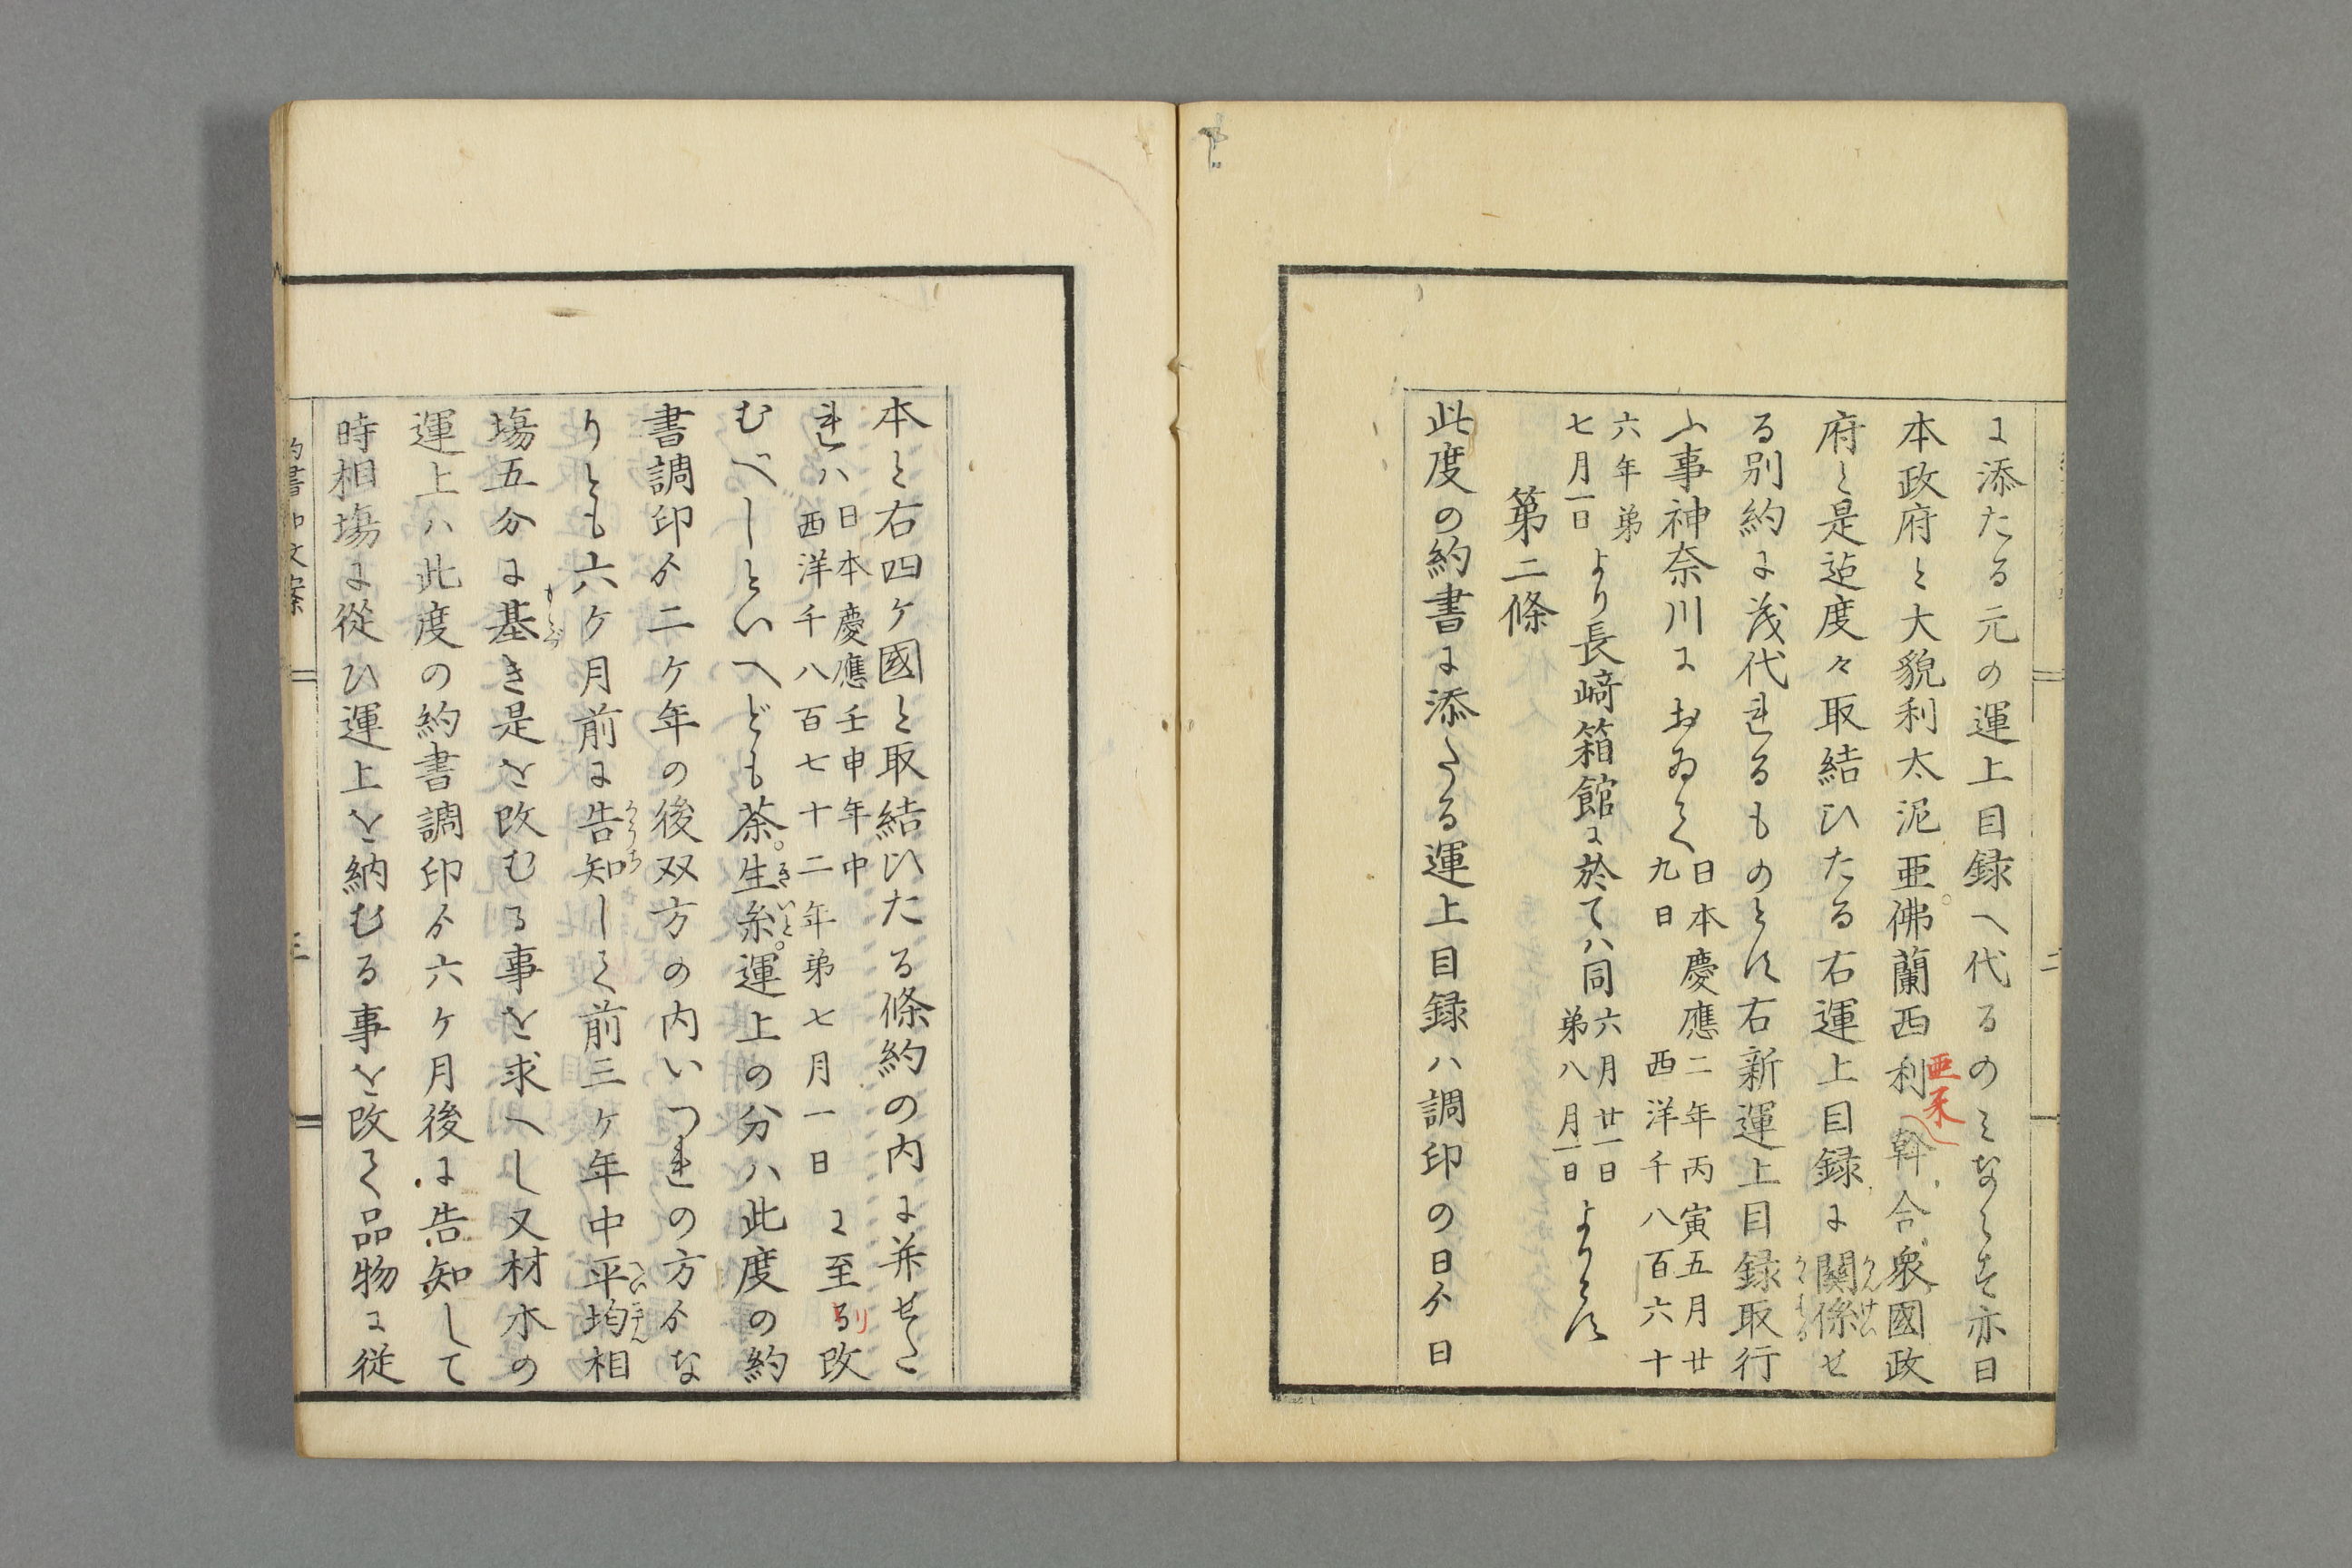 に添たる元の運上目録へ代るのミならす亦日
本政府と大貌利太泥亜。佛蘭西利亜米幹合衆國政
府と是迠度々取結ひたる右運上目録に關係せ
る別約に茂代れるものとす右新運上目録取行
ふ事神奈川におゐて日本慶應二年丙寅五月廿
九日西洋千八百六十
六年第
七月一日より長﨑箱館に於てハ同六月廿一日
第八月一日よりとす
第二條
此度の約書に添たる運上目録ハ調印の日ゟ日
本と右四ケ國と取結ひたる條約の内に并せた
れハ日本慶應壬申年中
西洋千八百七十二年第七月一日に至り改
むべしといへども茶。生糸。運上の分ハ此度の約
書調印ゟ二ケ年の後双方の内いつれの方ゟな
りとも六ケ月前に告知して前三ケ年中平均相
塲五分に基き是を改むる事を求へし又材木の
運上ハ此度の約書調印ゟ六ケ月後に告知して
時相塲に從ひ運上を納むる事を改て品物に従
約書和文案
三